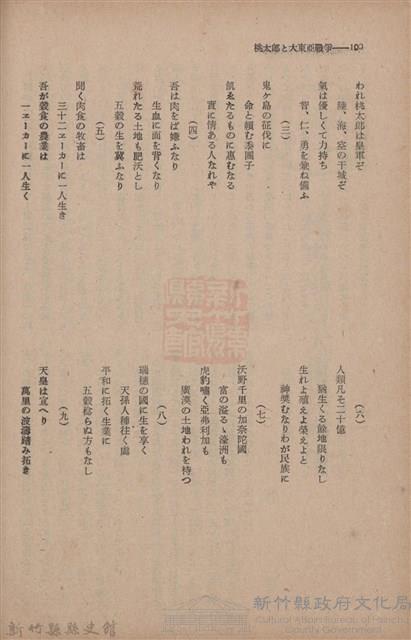 桃太郎と大東亞戰爭——100
われ桃太郎は皇軍ぞ
陸、海、空の干城ぞ
氣は優しくて力持ち
智、仁、勇を兼ね備ふ
(三)
鬼ヶ島の征伐に
命と頼む黍團子
飢ゑたるものに惠むなる
實に情ある人なれや
(四)
吾は肉をば嫌ふなり
生血に面を背くなり
荒れたる土地も肥沃とし
五穀の生を冀ふなり
(五)
聞く肉食の牧畜は
三十二ヱーカーに一人生き
吾が穀食の農業は
一ヱーカーに一人生く
(六)
人類凡そ二十億
猶生くる餘地限りなし
生れよ殖えよ榮えよと
神奬むなりわが民族に
(七)
沃野千里の加奈陀國
富の溢るゝ濠洲も
虎豹嘯く亞弗利加も
廣漠の土地われを待つ
(八)
瑞穗の國に生を享く
天孫人種往く處
平和に拓く生業に
五穀稔らぬ方もなし
(九)
天皇は宣へり
萬里の波濤踏み拓き
新竹縣政府文化局
Cultural Affairs Bureau of Hsinchu County Government
新竹縣縣史館